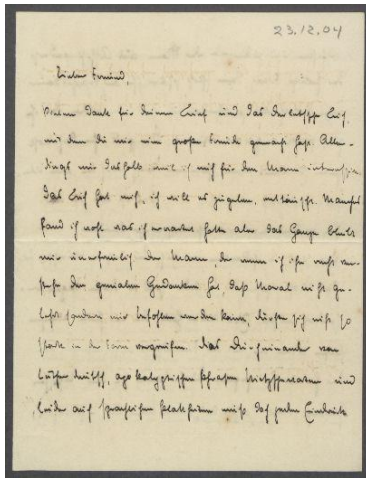 23.12.04
Lieber Freund,
Vielen Dank für deinen Brief und das Buch,
mit dem du mir eine große Freude gemacht hast. Aller-
dings nur deshalb weil ich mich für den Mann interessiere.
Das Buch hat mich, ich will es zugeben, enttäuscht. Manches
fand ich wohl was ich erwartet hatte aber das Ganze bleibt
mir unerfreulich. Der Mann, der wenn ich ihn recht ver-
stehe den genialen Gedanken hat, daß Moral nicht ge-
lehrt sondern nur befohlen werden kann, dürfte sich nicht so
stark in der Form vergreifen. Das Durcheinander von
Lutherdeutsch, apokalyptischen Phrasen Nietzsche und
leider auch sprachlichen macht doch Eindruck